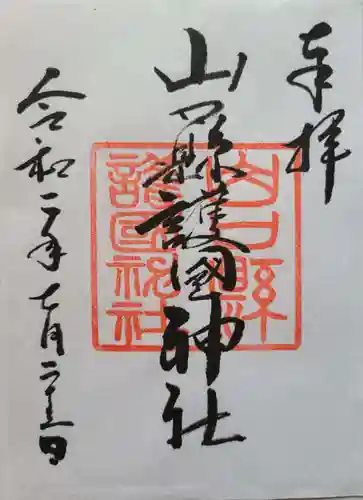 奉拝
山口縣護國神社
令和二年七月二十三日
山口縣
護國神社